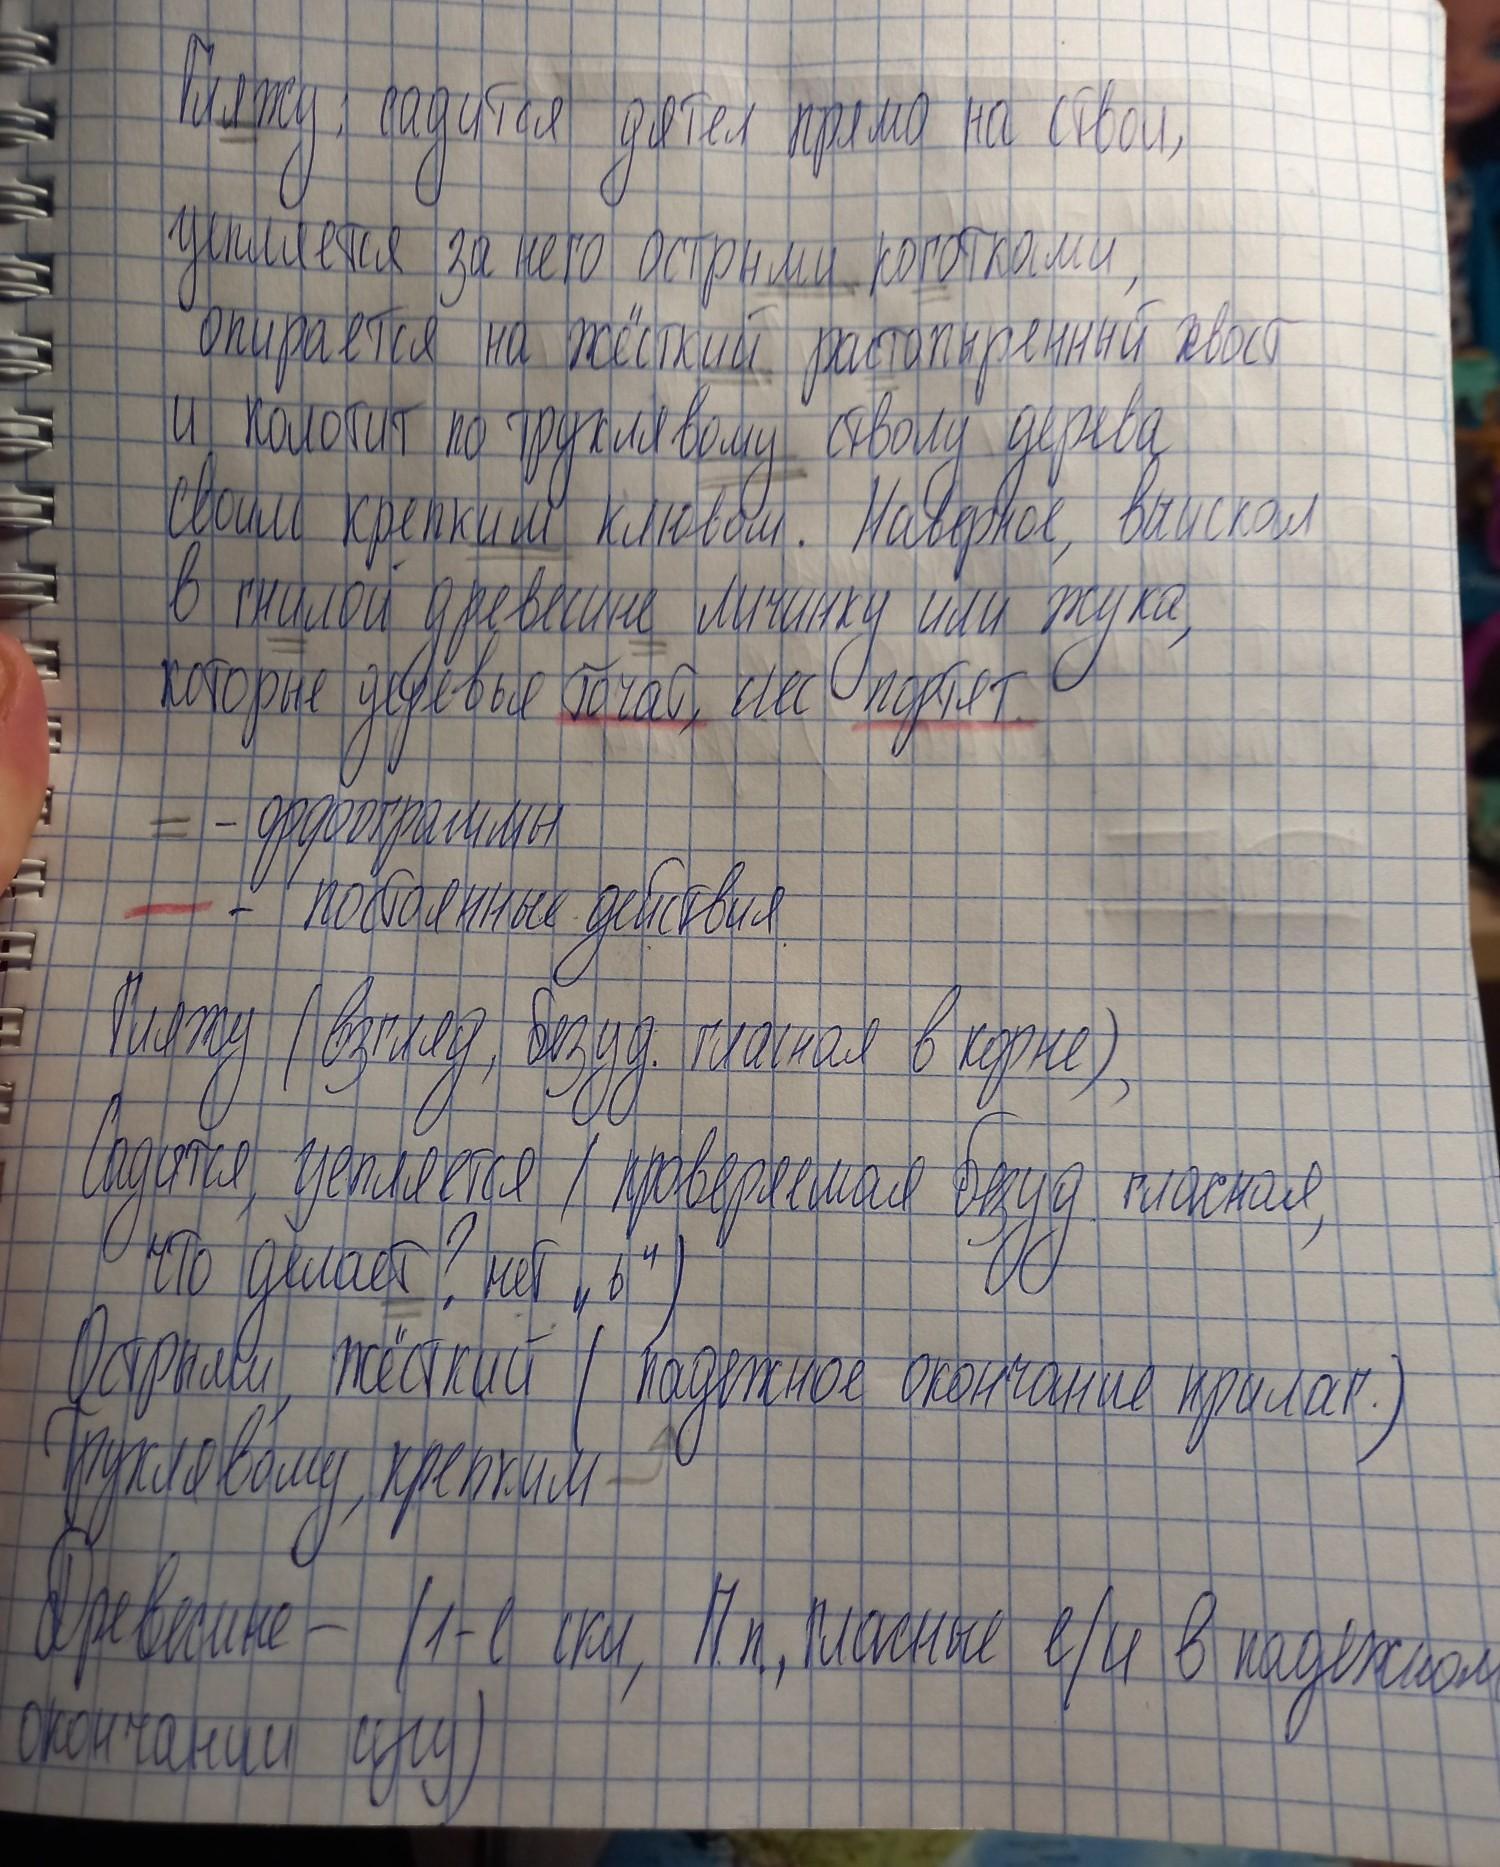 Гляжу: садится дятел прямо на ствол,
цепляется за него острыми коготками,
опирается на жёсткий растопыренный хвост
и колотит по трухлявому стволу дерева
своим крепким клювом. Наверное, выискал
в гнилой древесине личинку или жука,
которые деревья точат, лес портят.
= - орфограммы
— - постоянные действия
Гляжу (взгляд, безуд. гласная в корне),
Садится, цепляется (проверяемая безуд. гласная,
что делает? нет „ь“)
Острыми, жёсткий (падежное окончание прилаг.)
Трухлявому, крепким
Древесине – (1-е скл, П.п., гласные е/и в падежном
окончании сущ)